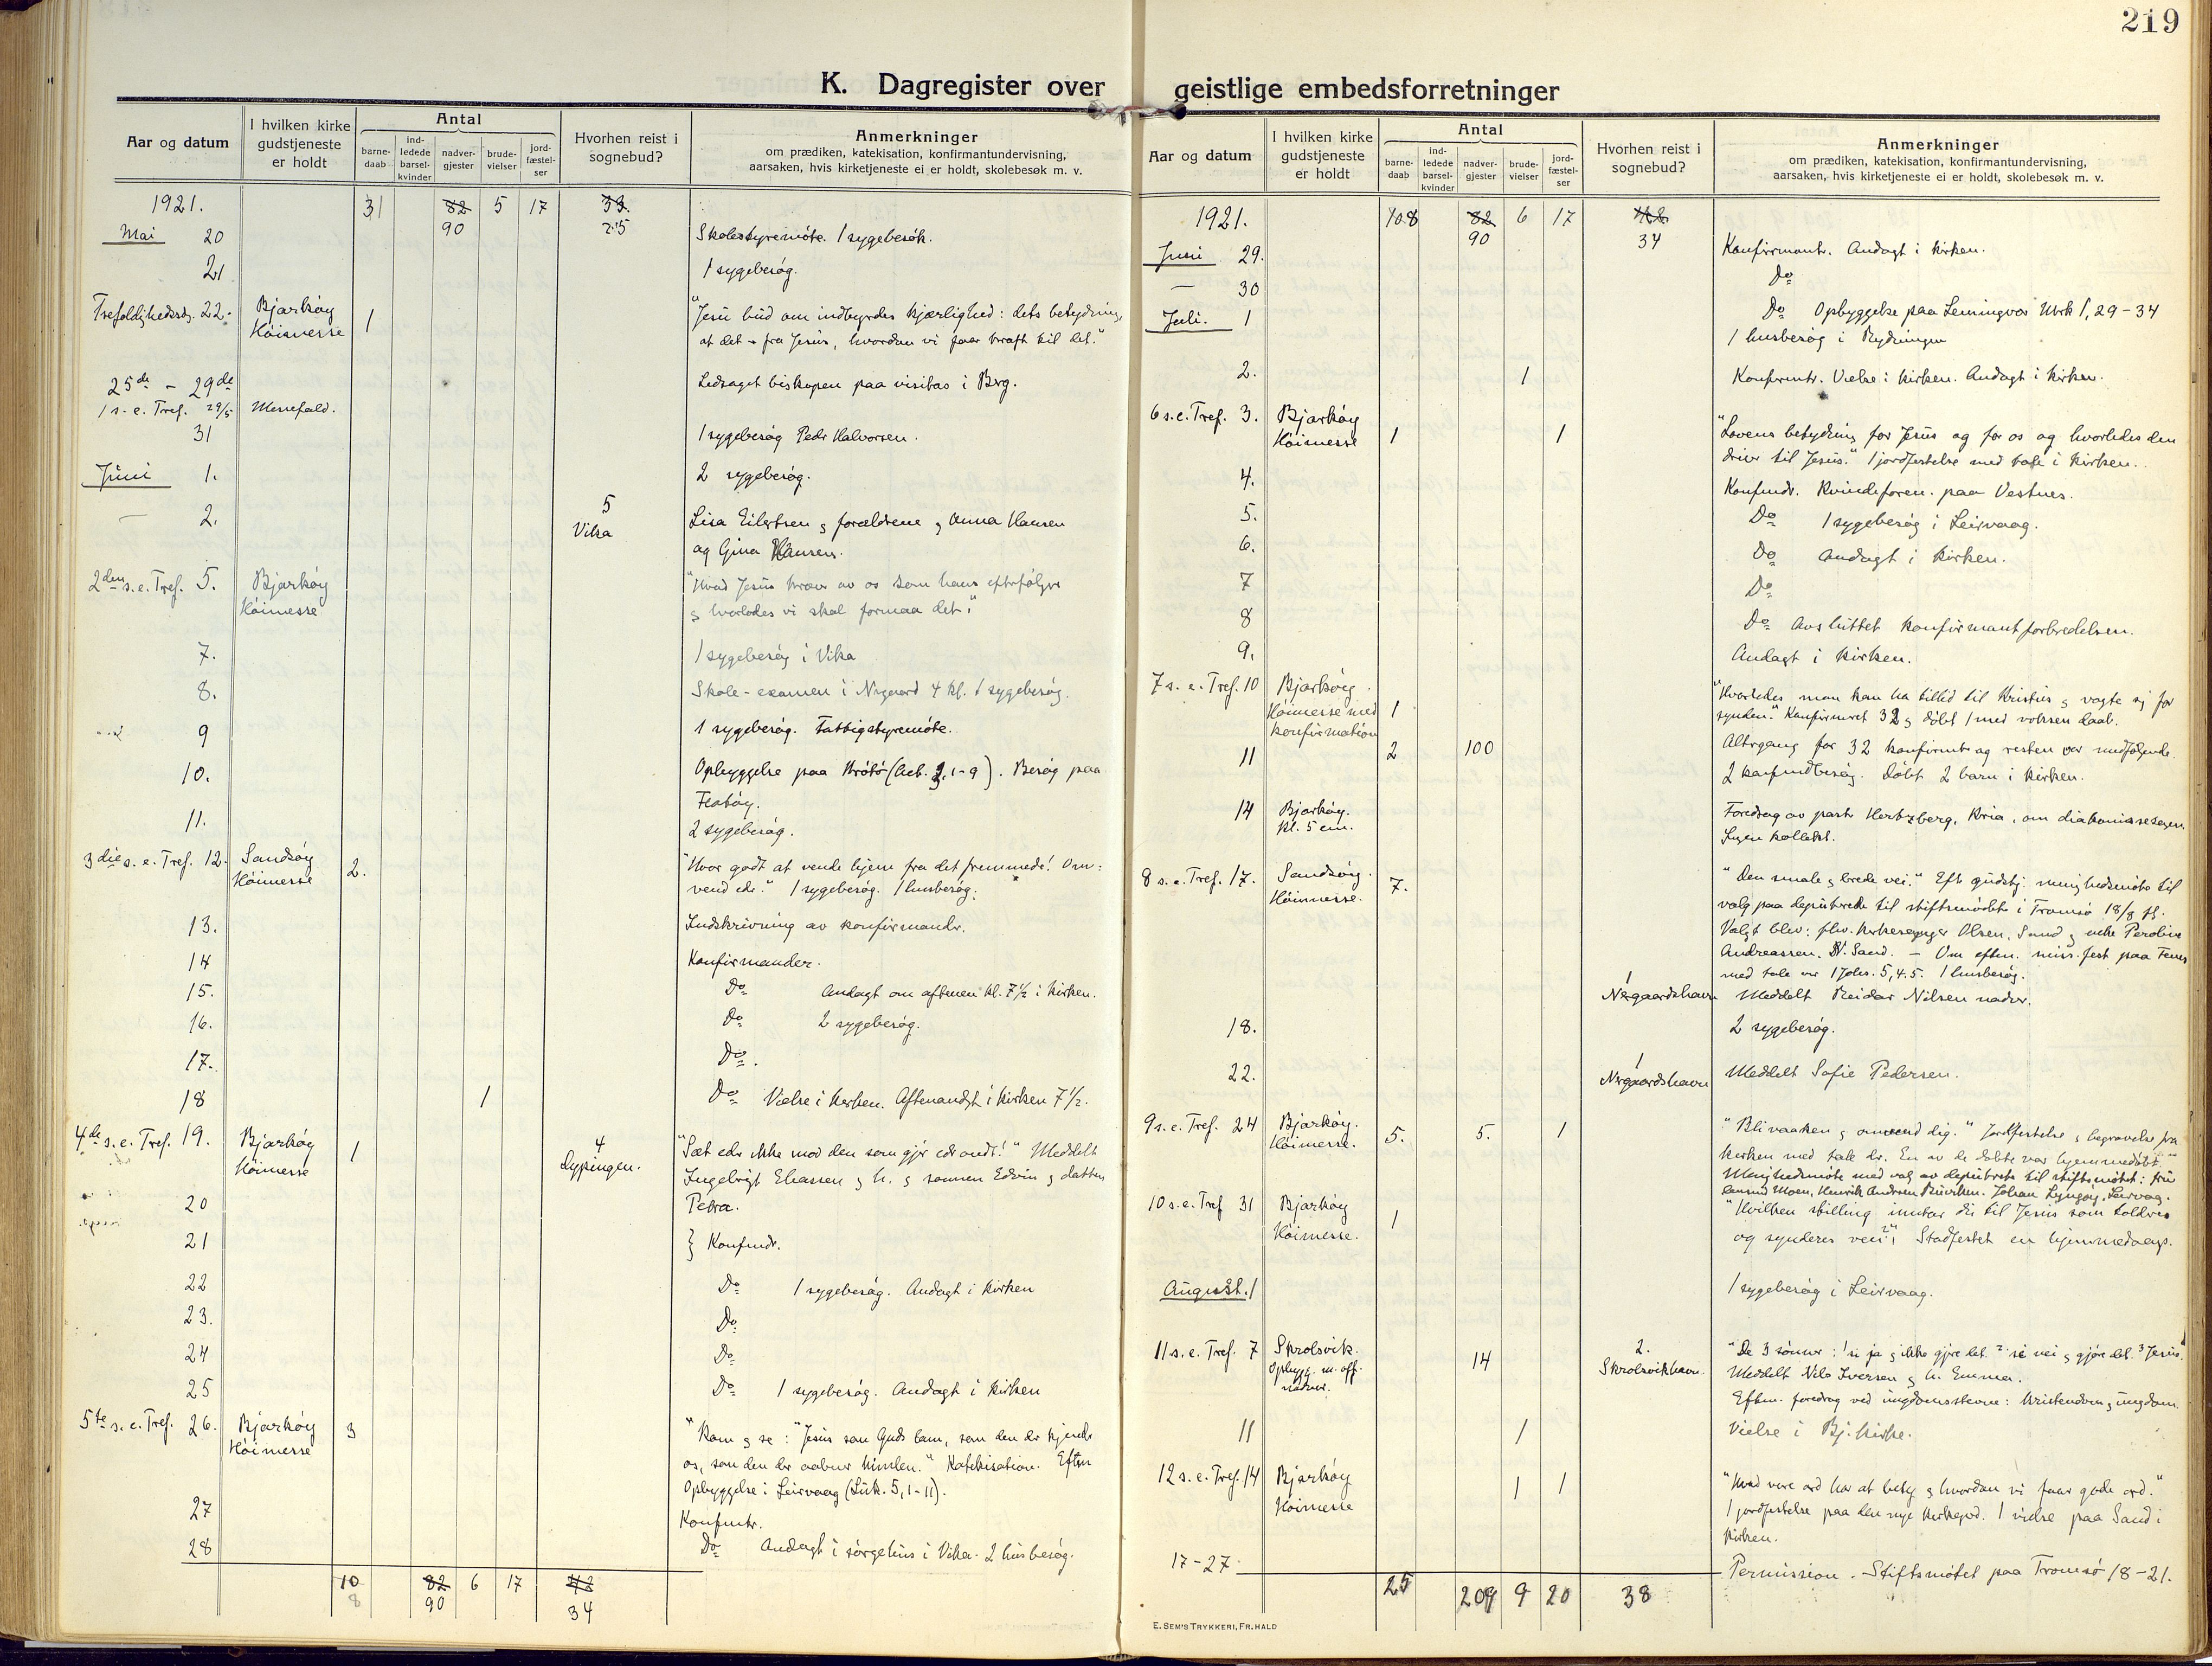 219
K. Dagregister over geistlige embedsforretninger
Aar og datum
I hvilken kirke gudstjeneste er holdt
Antal
barne-daab
ind-ledede barsel-kvinder
nadver-gjester
brude-vielser
jord-fæstel-ser
Hvorhen reist i sognebud?
Anmerkninger
om prædiken, katekisation, konfirmantundervisning,
aarsaken, hvis kirketjeneste ei er holdt, skolebesøk m. v.
1921. 31 82 5 17 33.
90 25
Mai 20 Skolestyremöte. 1 sygebesök.
21 1 sygebesög.
Trefoldighedssg. 22. Bjarköy 1 "Jesu bud om indbyrdes kjærlighed: dets betydning,
Höimesse at det er fra Jesus, hvordan vi faar kraft til det."
25de - 29de Ledsaget biskopen paa visitas i Brg.
1 s. e. Tref. 29/5 Messefald.
31 1 sygebesög Peder Halvorsen.
Juni 1. 2 sygebesög.
5
2. Vika Lisa Eilertsen & forældrene & Anna Hansen
og Gina Hansen.
2den s. e. Tref. 5. Bjarköy "Hvad Jesus kræver av os som hans efterfölgere
Höimesse & hvorledes vi skal formaa det."
7. 1 sygebesög i Vika
8. Skole-examen i Nergaard 4 kl. 1 sygebesög.
9 1 sygebesög. Fattigstyremöte.
10. Opbyggelse paa Krötö (Act. 3, 1-9). Besög paa
Flatöy.
11. 2 sygebesög.
3die s. e. Tref. 12. Sandsöy 2. "Hvor godt at vende hjem fra det fremmede! Om-
Höimesse vend eder." 1 sygebesög. 1 husbesög.
13. Indskrivning av konfirmander.
14 Konfirmander.
15. Do Andagt om aftenen kl. 7½ i kirken.
16. Do 2 sygebesög.
17. Do.
18 1 Do Vielse i kirken. Aftenandgt i kirken 7½.
4de s. e. Tref. 19. Bjarköy 1 4 "Sæt eder ikke mod den som gjör eder ondt!" Meddelt
Höimesse Dypingen. Ingebrigt Eliassen & h. & sönnen Edvin & datteren
20 Petra.
21 } Konfmdr.
22 Do 1 sygebesög. Andagt i kirken
23. Do
24 Do
25 Do 1 sygebesög. Andagt i kirken
5te s. e. Tref. 26. Bjarköy 3 "Kom & se: "Jesus som Guds lam, som den der kjender
Höimesse os, som den der aabner himlen." Katekisation. Eftm
Opbyggelse i Leirvaag (Luk. 5, 1-11).
27 Konfmtr.
28 Do Andagt i sörgehus i Vika. 2 husbesög.
10 82 6 17 42
8 90 34
Aar og datum
I hvilken kirke gudstjeneste er holdt
Antal
barne-daab
ind-ledede barsel-kvinder
nadver-gjester
brude-vielser
jord-fæstel-ser
Hvorhen reist i sognebud?
Anmerkninger
om prædiken, katekisation, konfirmantundervisning,
aarsaken, hvis kirketjeneste ei er holdt, skolebesøk m. v.
1921. 108 82 6 17
90 34
Juni 29. Konfirmantr. Andagt i kirken.
30 Do
Juli. 1 Do Opbyggelse paa Lemingvær Mrk 1, 29-34
1 husbesög i Rydningen
2. 1 Konfirmtr. Vielse i kirken. Andagt i kirken.
6 s. e. Tref. 3. Bjarköy
Höimesse 1 1 "Lovens betydning for Jesus og for os og hvorledes den
driver til Jesus." 1 jordfestelse med tale i kirken.
4. Konfmdr. Kvindeforen. paa Vestnes.
5. Do 1 sygebesög i Leirvaag.
6. Do Andagt i kirken.
7 Do
8 Do Avsluttet konfirmantforberedelsen.
9. Andagt i kirken.
7 s. e. Tref. 10 Bjarköy. "Hvorledes man kan ha tillid til Kristus & vogte sig for
Höimesse med 1 synden." Konfirmeret 32 & döbt 1 med voksen daab.
konfirmation
11 2 100 Altergang for 32 konfirmt og resten var medfölgende.
2 konfmdbesög. Döbt 2 barn i kirken.
14 Bjarköy. Foredrag av pastr Hertzberg, Kria, om diakonissesagen.
kl. 5 em. Ingen kollekt.
8 s. e. Tref. 17. Sandsöy. 7. "Den smale & brede vei." Eft gudstj. menighedsmöte til
Höimesse. valg paa deputerede til stiftsmödet i Tromsö 18/8 ff.
Valgt blev: fhv. kirkesanger Olsen, Sand & enke Peroline
Andreassen, N. Sand. - Om eftm. miss. fest paa Fenes
1 med tale over 1 Johs. 5, 4. 5. 1 husbesög.
Nergaardshavn Meddelt Reidar Nilsen nadver.
18. 2 sygebesög.
1
22. Nergaardshavn Meddelt Sofie Pedersen.
9 s. e. Tref. 24 Bjarköy. 5. 5. 1 "Bli vaaken & omvend dig." Jordfestelse & begravelse fra
Höimesse. kirken med tale der. En av de döbte var hjemmedöbt."
Menighedsmöte med valg av deputerte til stiftsmötet: fru
Moen, Henrik Andersen . Johan Lyngöy, Leirvag.
10 s. e. Tref 31 Bjarköy 1 "Hvilken stilling inntar du til Jesus som tolderes
Höimesse. og synderes ven?" Stadfestet en hjemmedaap.
August. 1 1 sygebesög i Leirvaag.
11 s. e. Tref. 7 Skrolsvik. 14 2. "De 3 sönner: 1 si ja & ikke gjöre det. 2 si nei & gjöre det. 3 Jesus."
Opbygg. m. off. Skrolsvikhavn Meddelt Nils Iversen & h. Emma.
nadver. Eftm. foredrag ved ungdomsstevne: Kristendom & ungdom.
11 1 Vielse i Bj. kirke.
12 s. e. Tref. 14 Bjarköy 1 1 "Hvad vore ord har at bety & hvordan vi faar gode ord."
Höimesse 1 jordfestelse paa den nye kirkegrd. 1 vielse paa Sand i
kirken.
17-27 Permission. Stiftsmötet paa Tromsö 18-21.
25 209 9 20 38
E. SEM'S TRYKKERI, FR.HALD